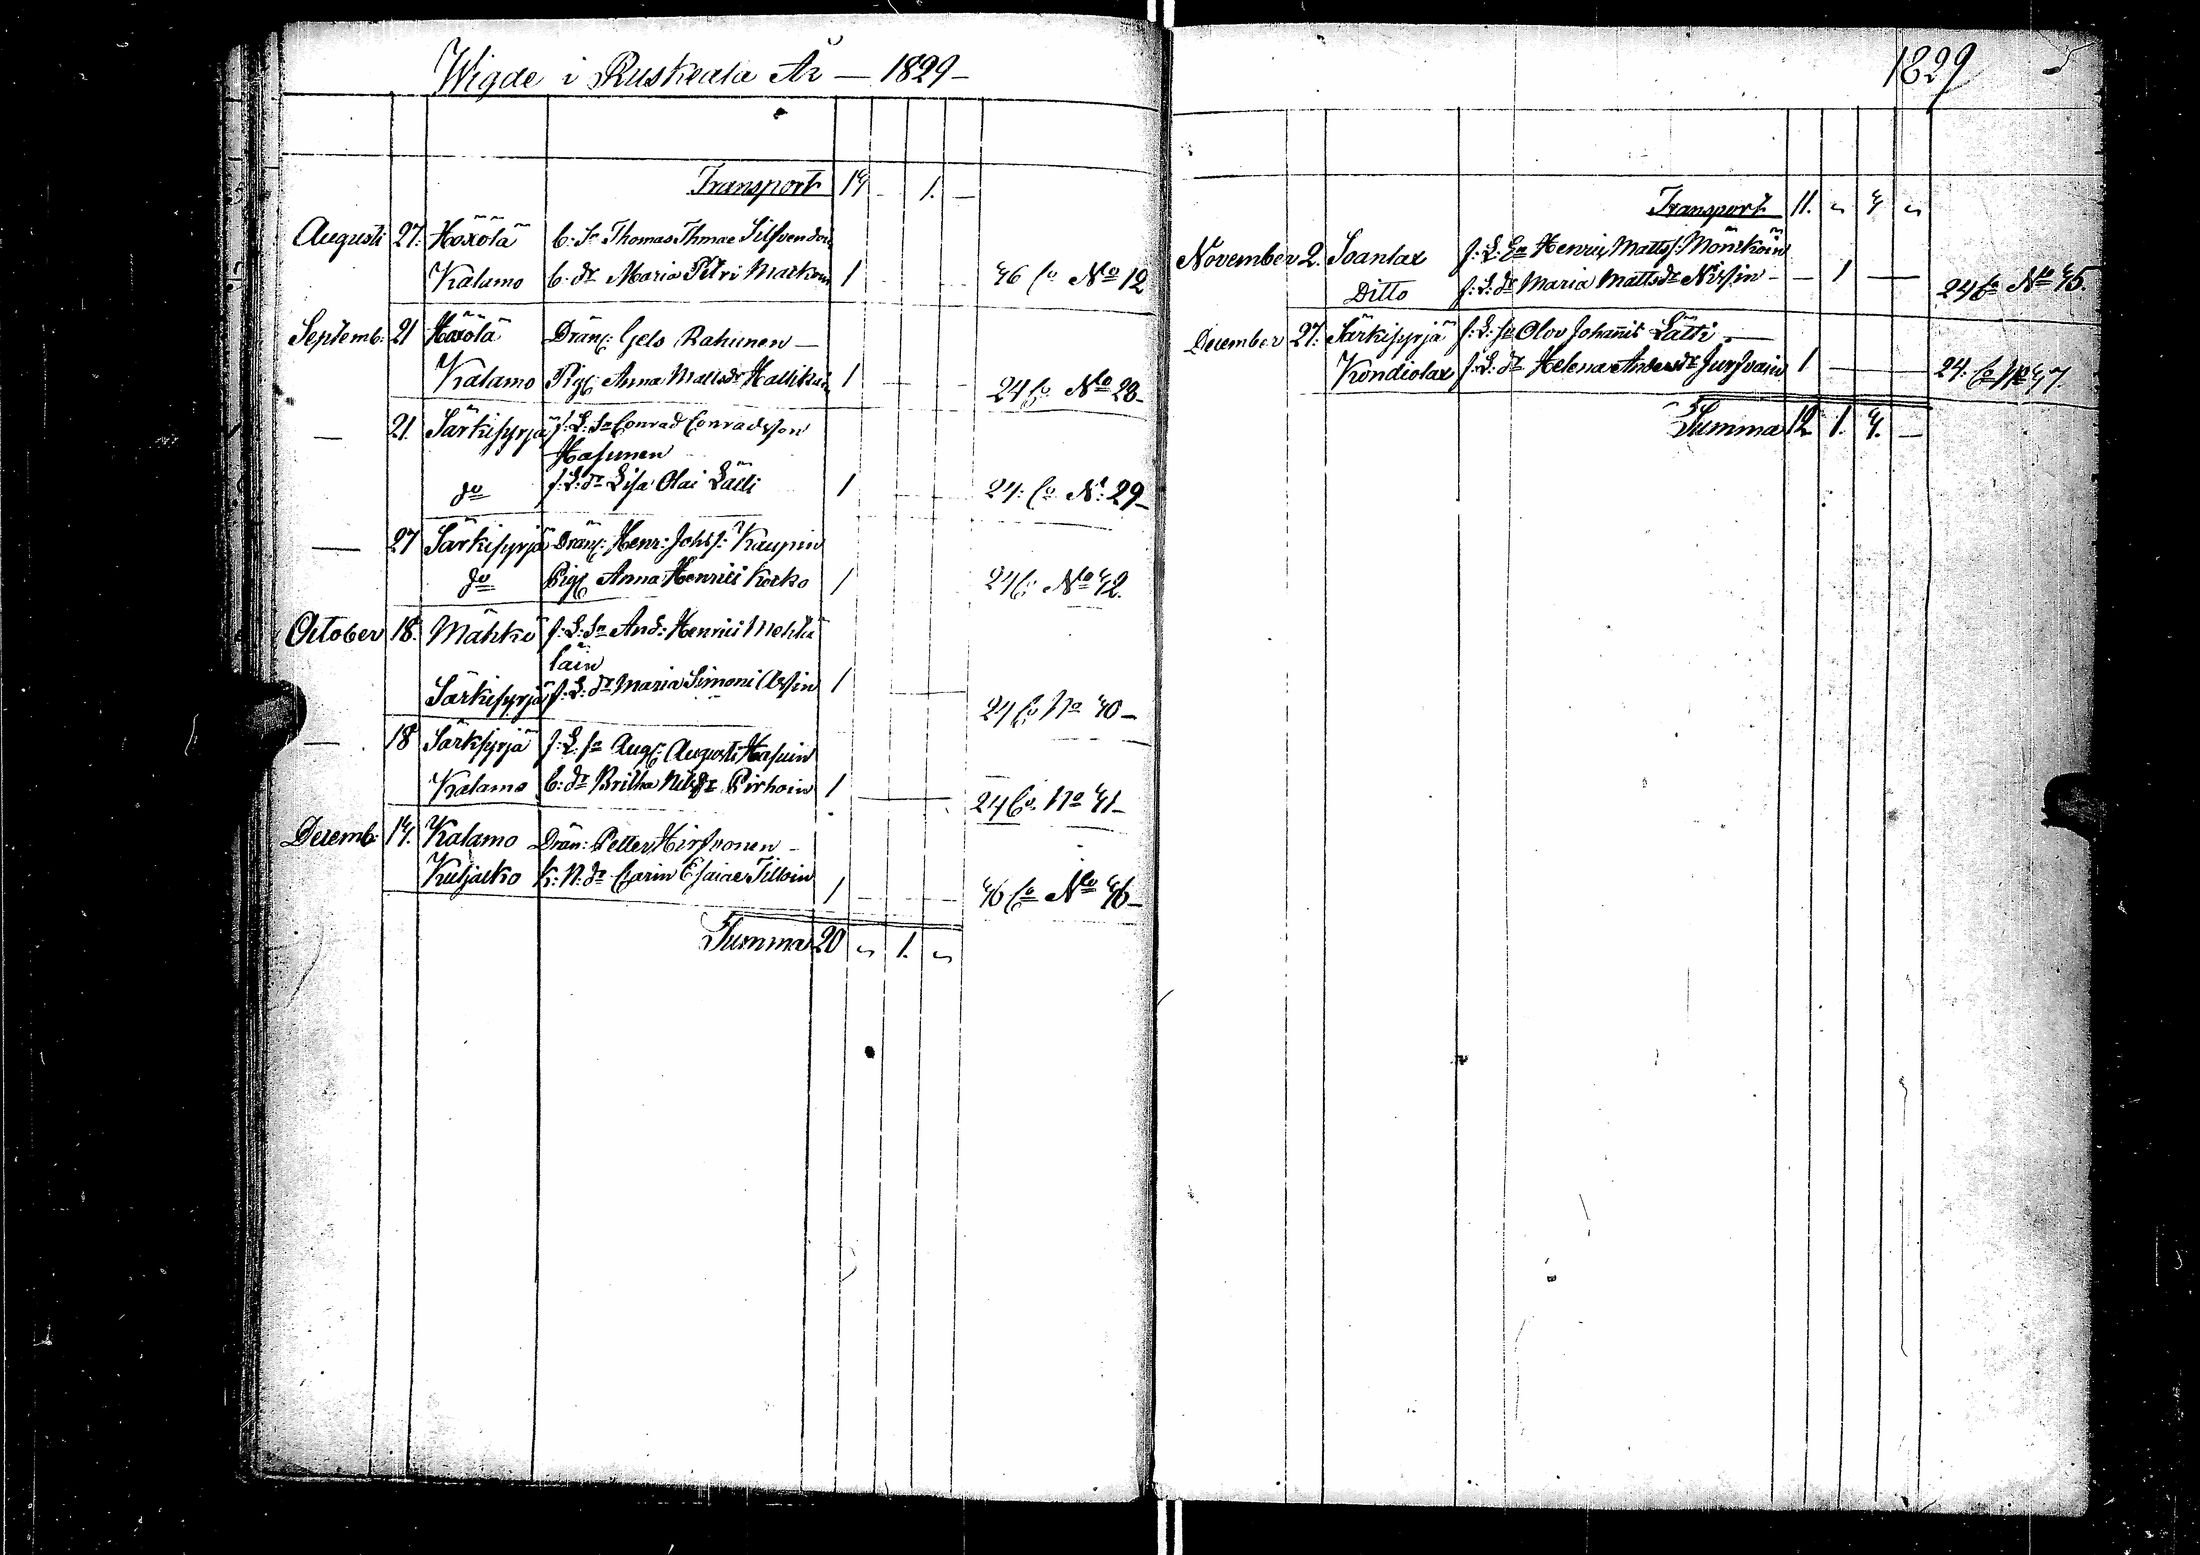 Wigde i Ruskeala År — 1829 —
Transport 14 - 1. —
Augusti 27. Höxölä b: Sn Thomas Thmae Silfvendoin
Kalamo b: dr Maria Petri Markoin 1 46 Co No 12
Septemb: 21 Höxölä Dräng: Gels Rahunen —
Kalamo Pig: Anna Mattsdr Hallikain 1 24 Co No 28 —
— 21. Särkisyrjä f: L: Sn Conrad Conradsson
Hasunen
do f: L: dr Lisa Olai Lätti 1 24: Co No: 29 —
— 27 Särkisyrjä Dräng: Henr: Johs: Kaupin
do Pig: Anna Henrici Korko 1 24 Co No 42.
October 18. Mähkö f: L: Sn And: Henrici Mehtä
läin
Särkisyrjä f: L: dr Maria Simoni 1 24 Co No 40 —
— 18 Särksyrjä f: L: Sn Aug: Augusti Hasuin
Kalamo b: dr Britha Nilsdr Pirhoin 1 24 Co. No 41 —
Decemb: 14. Kalamo Drän: Petter Hirfvonen —
Kuljakko K: N: dr Carin Esaiae Tilloin 1 46 Co No 46 —
Summa 20 „ 1. „
1829 5
Transport 11. „ 4 „
November 2. Soanlax f: L: Sn Henric Matts: Mönkköin
Ditto f: L: dr Maria Mattsdr Nissin — — 1 — 24 Co No 45.
December 27. Särkisyrjä f: L: Sn Olov Johannis Lätti —
Kondiolax f: L: dr Helena Andersdr Jurfvain 1 — 24. Co No 47.
Summa 12 1. 4. —